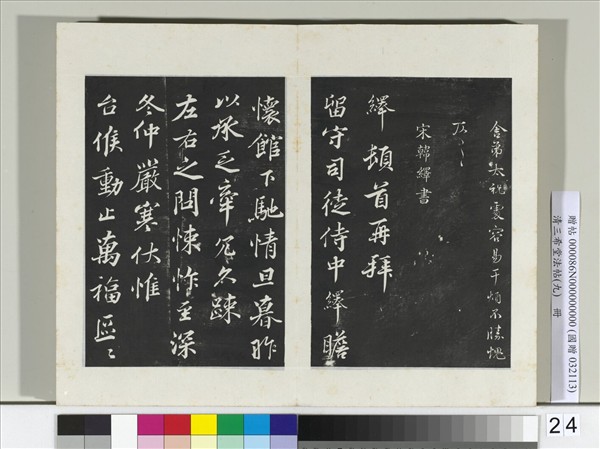 舍弟太祝處容易干煩不勝愧
宋韓繹書
繹頓首再拜
留守司徒侍中繹瞻
懷館下馳情旦暮昨
以承乏冗久疎
左右之問悚怍至深
冬仲嚴寒伏惟
台候動止萬福區〻
贈帖 000086N000000000 (國贈 032113)
清三希堂法帖(九) 冊
24